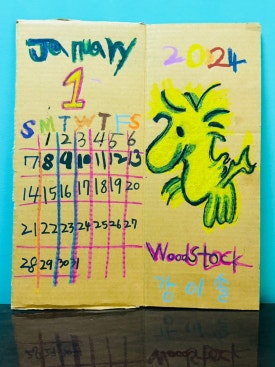 January
1
S M T W T F S
1 2 3 4 5 6
7 8 9 10 11 12 13
14 15 16 17 18 19 20
21 22 23 24 25 26 27
28 29 30 31
2024
Woodstock
강 이